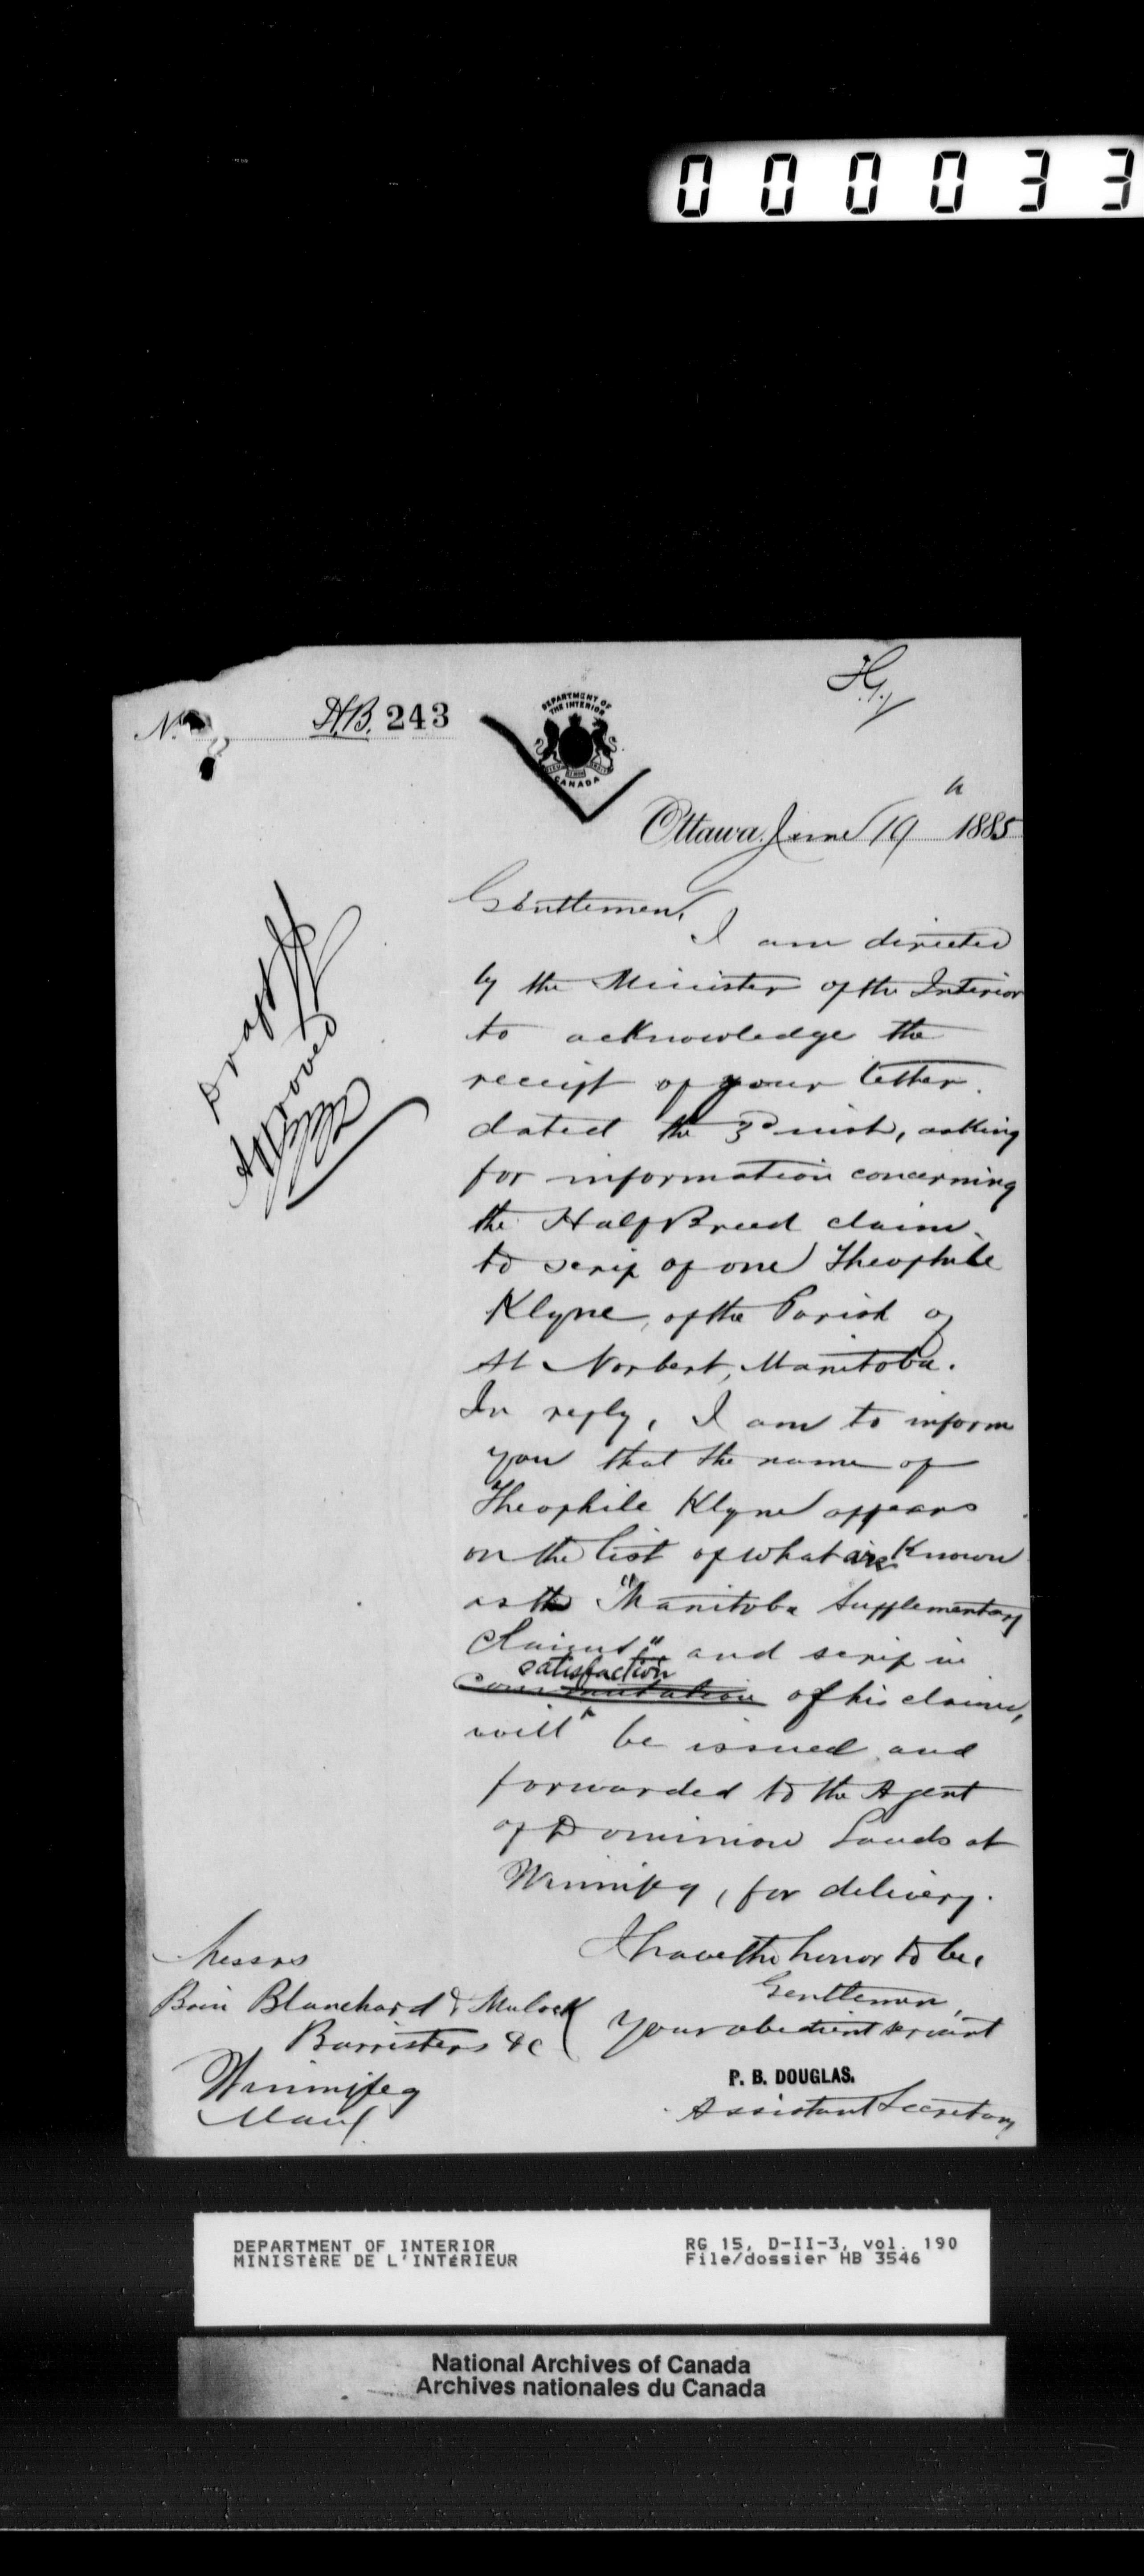 000033
H.G.
No. H.B. 243
DEPARTMENT OF
THE INTERIOR
CANADA
Ottawa, June 19th 1885
Draft
Approved
Gentlemen,
I am directed
by the Minister of the Interior
to acknowledge the
receipt of your letter
dated the 3d inst, asking
for information concerning
the Half Breed claim
to scrip of one Theophile
Klyne, of the Parish of
St Norbert, Manitoba.
In reply, I am to inform
you that the name of
Theophile Klyne appears
on the list of what is known
as the "Manitoba Supplementary
Claims" and scrip in
satisfaction
commutation of his claim,
will be issued and
forwarded to the Agent
of Dominion Lands at
Winnipeg, for delivery.
I have the honor to be,
Gentlemen,
Your obedient servant
P. B. DOUGLAS.
Assistant Secretary
Messrs
Bain Blanchard & Mulock
Barristers &c
Winnipeg
Man
DEPARTMENT OF INTERIOR
MINISTÈRE DE L'INTÉRIEUR
RG 15, D-II-3, vol. 190
File/dossier HB 3546
National Archives of Canada
Archives nationales du Canada